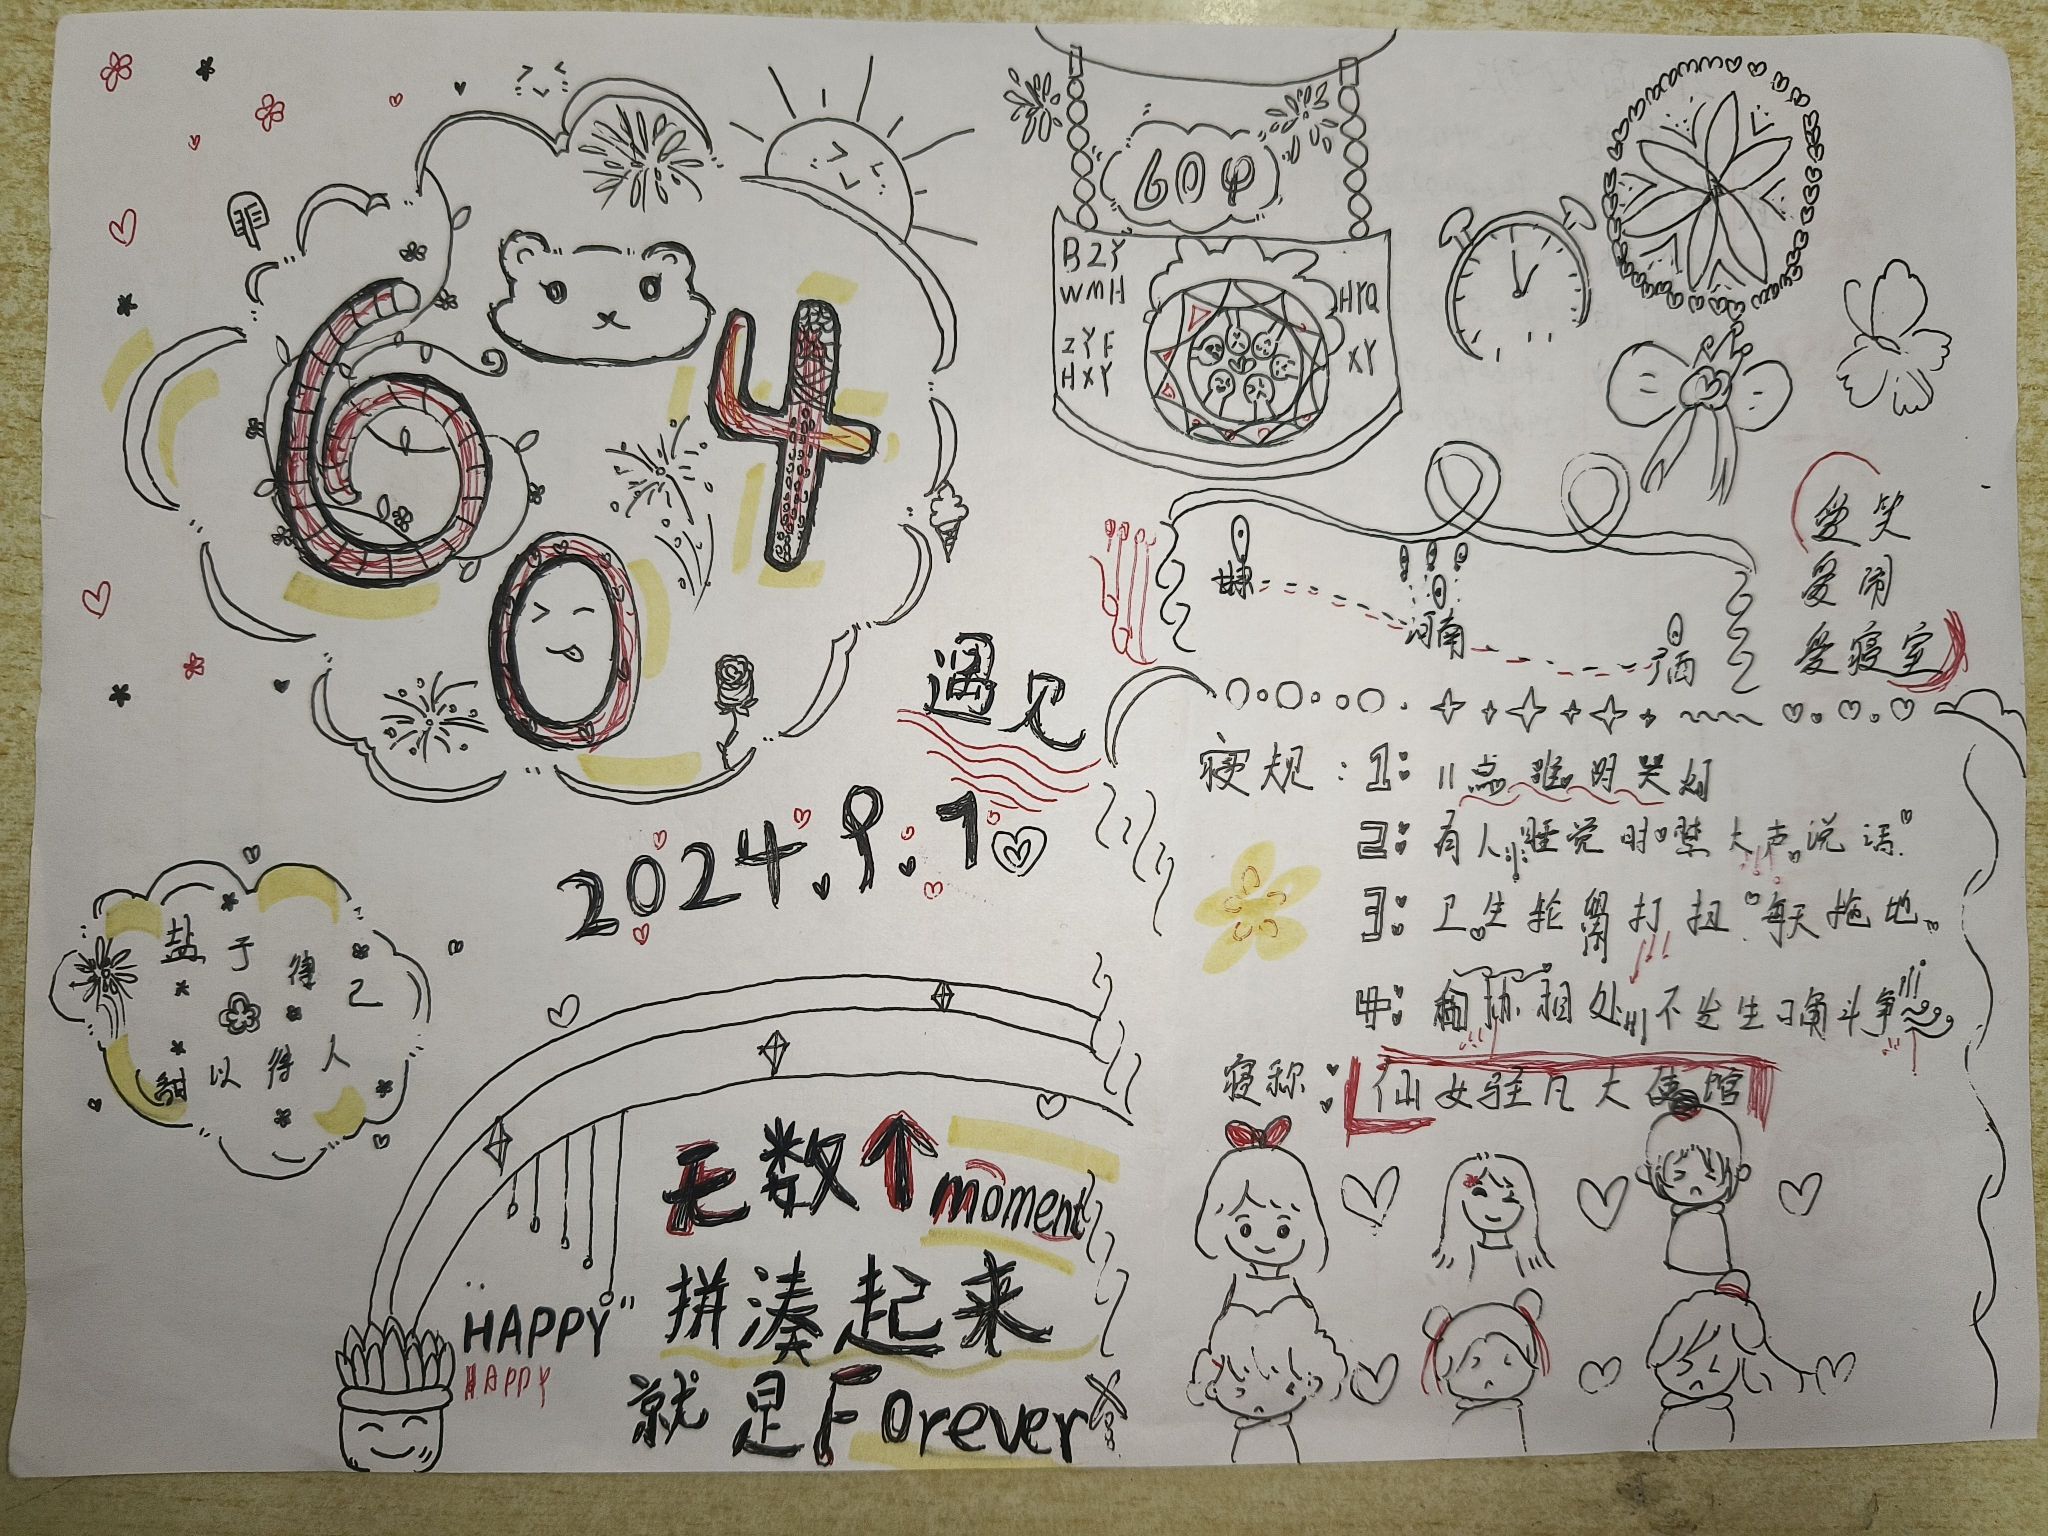 604
604
BZY
WMH
ZYF
HXY
HYQ
XY
河南
广西
爱笑
爱闹
爱寝室
遇见
2024.9.1
寝规：1：11点准时关灯
2：有人睡觉时禁大声说话
3：卫生轮流打扫 每天拖地
4：和你相处 不发生口角斗争
寝称：仙女驻凡大使馆
盐于待己
甜以待人
无数个moment
拼凑起来
就是Forever
HAPPY
HAPPY